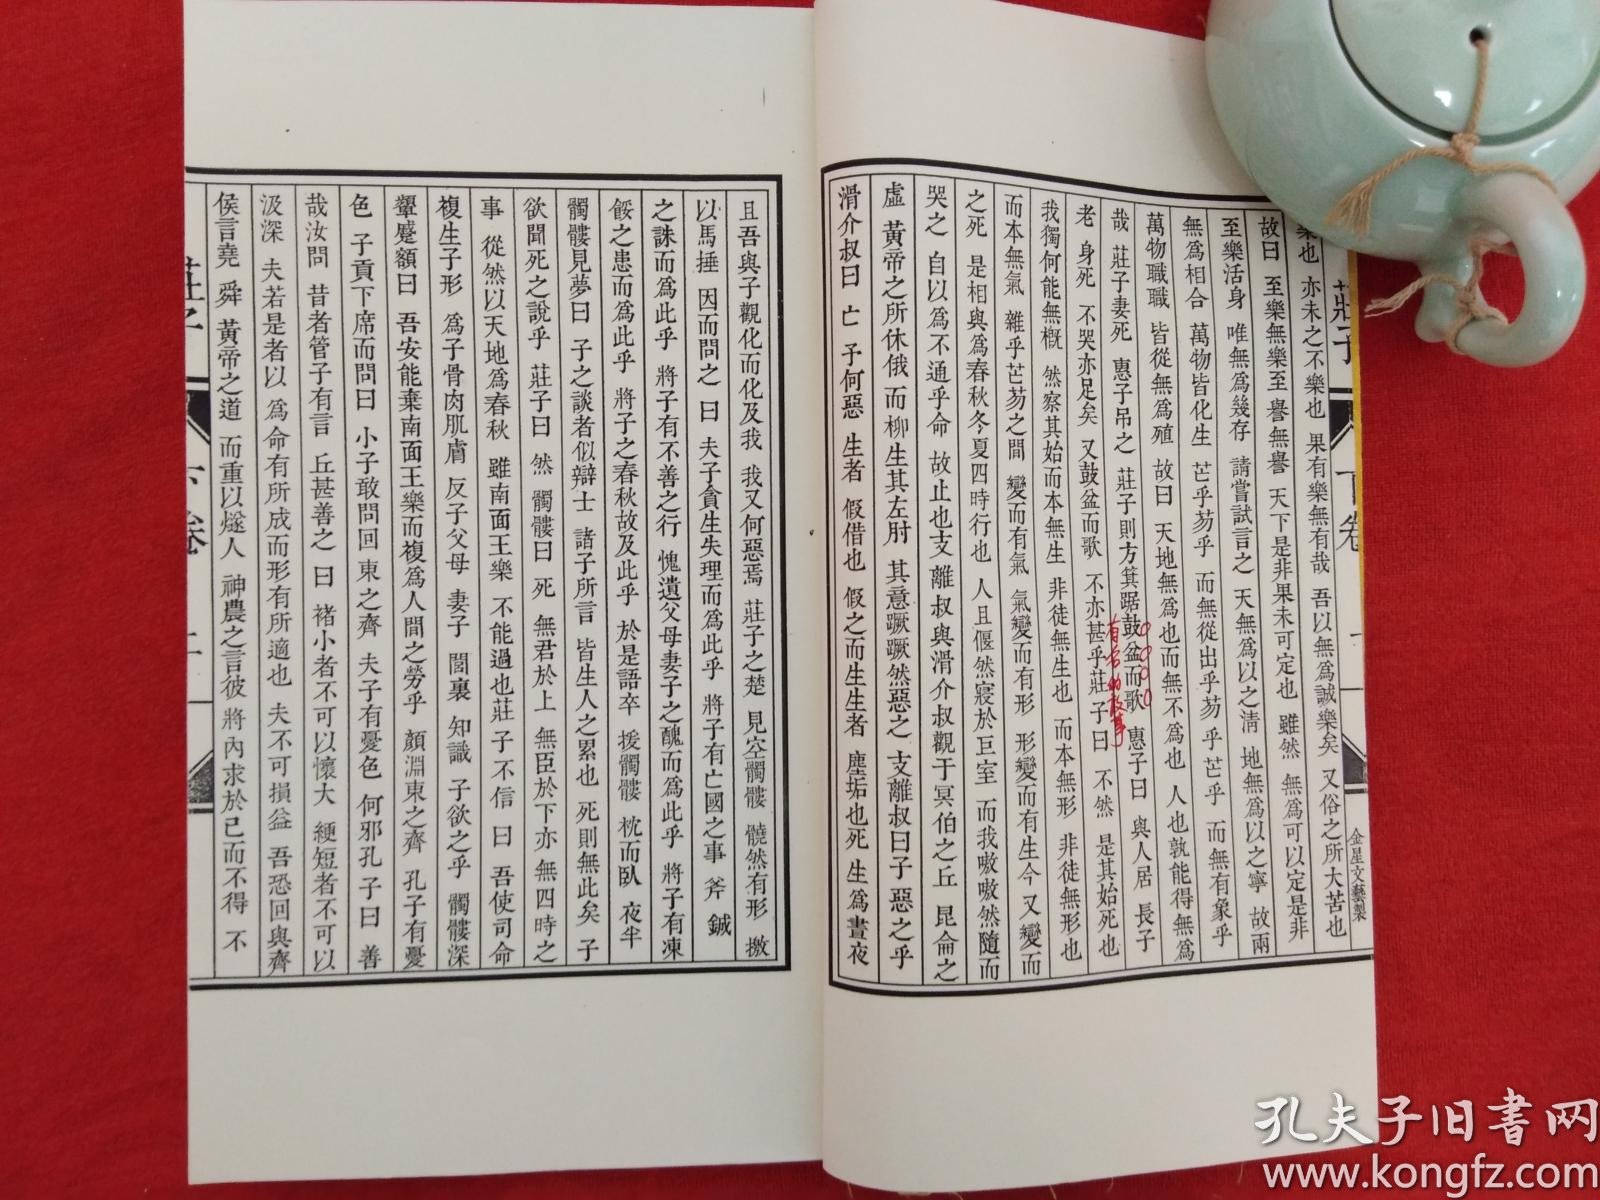 莊子
下卷
金星文藝製
樂也 亦未之不樂也 果有樂無有哉 吾以無為誠樂矣 又俗之所大苦也
故曰 至樂無樂至譽無譽 天下是非果未可定也 雖然 無為可以定是非
至樂活身 唯無為幾存 請嘗試言之 天無為以之清 地無為以之寧 故兩
無為相合 萬物皆化生 芒乎芴乎 而無從出乎芴乎芒乎 而無有象乎
萬物職職 皆從無為殖 故曰 天地無為也而無不為也 人也孰能得無為
哉 莊子妻死 惠子吊之 莊子則方箕踞鼓盆而歌 惠子曰 與人居 長子
有名的故事
老 身死 不哭亦足矣 又鼓盆而歌 不亦甚乎莊子曰 不然 是其始死也
我獨何能無概 然察其始而本無生 非徒無生也 而本無形 非徒無形也
而本無氣 雜乎芒芴之間 變而有氣 氣變而有形 形變而有生今又變而
之死 是相與為春秋冬夏四時行也 人且偃然寢於巨室 而我嗷嗷然隨而
哭之 自以為不通乎命 故止也支離叔與滑介叔觀于冥伯之丘 昆侖之
虛 黃帝之所休俄而柳生其左肘 其意蹶蹶然惡之 支離叔曰子惡之乎
滑介叔曰 亡 予何惡 生者 假借也 假之而生生者 塵垢也死生為晝夜
且吾與子觀化而化及我 我又何惡焉 莊子之楚 見空髑髏 髐然有形 撽
以馬捶 因而問之 曰 夫子貪生失理而為此乎 將子有亡國之事 斧鉞
之誅而為此乎 將子有不善之行 愧遺父母妻子之醜而為此乎 將子有凍
餒之患而為此乎 將子之春秋故及此乎 於是語卒 援髑髏 枕而臥 夜半
髑髏見夢曰 子之談者似辯士 諸子所言 皆生人之累也 死則無此矣 子
欲聞死之說乎 莊子曰 然 髑髏曰 死 無君於上 無臣於下亦無四時之
事 從然以天地為春秋 雖南面王樂 不能過也莊子不信 曰 吾使司命
複生子形 為子骨肉肌膚 反子父母 妻子 閭裏 知識 子欲之乎 髑髏深
顰蹙頞曰 吾安能棄南面王樂而複為人間之勞乎 顏淵東之齊 孔子有憂
色 子貢下席而問曰 小子敢問回東之齊 夫子有憂色 何邪孔子曰 善
哉汝問 昔者管子有言 丘甚善之 曰 褚小者不可以懷大 綆短者不可以
汲深 夫若是者以為命有所成而形有所適也 夫不可損益 吾恐回與齊
侯言堯 舜 黃帝之道 而重以燧人 神農之言彼將內求於己而不得 不
孔夫子旧書网
www.kongfz.com